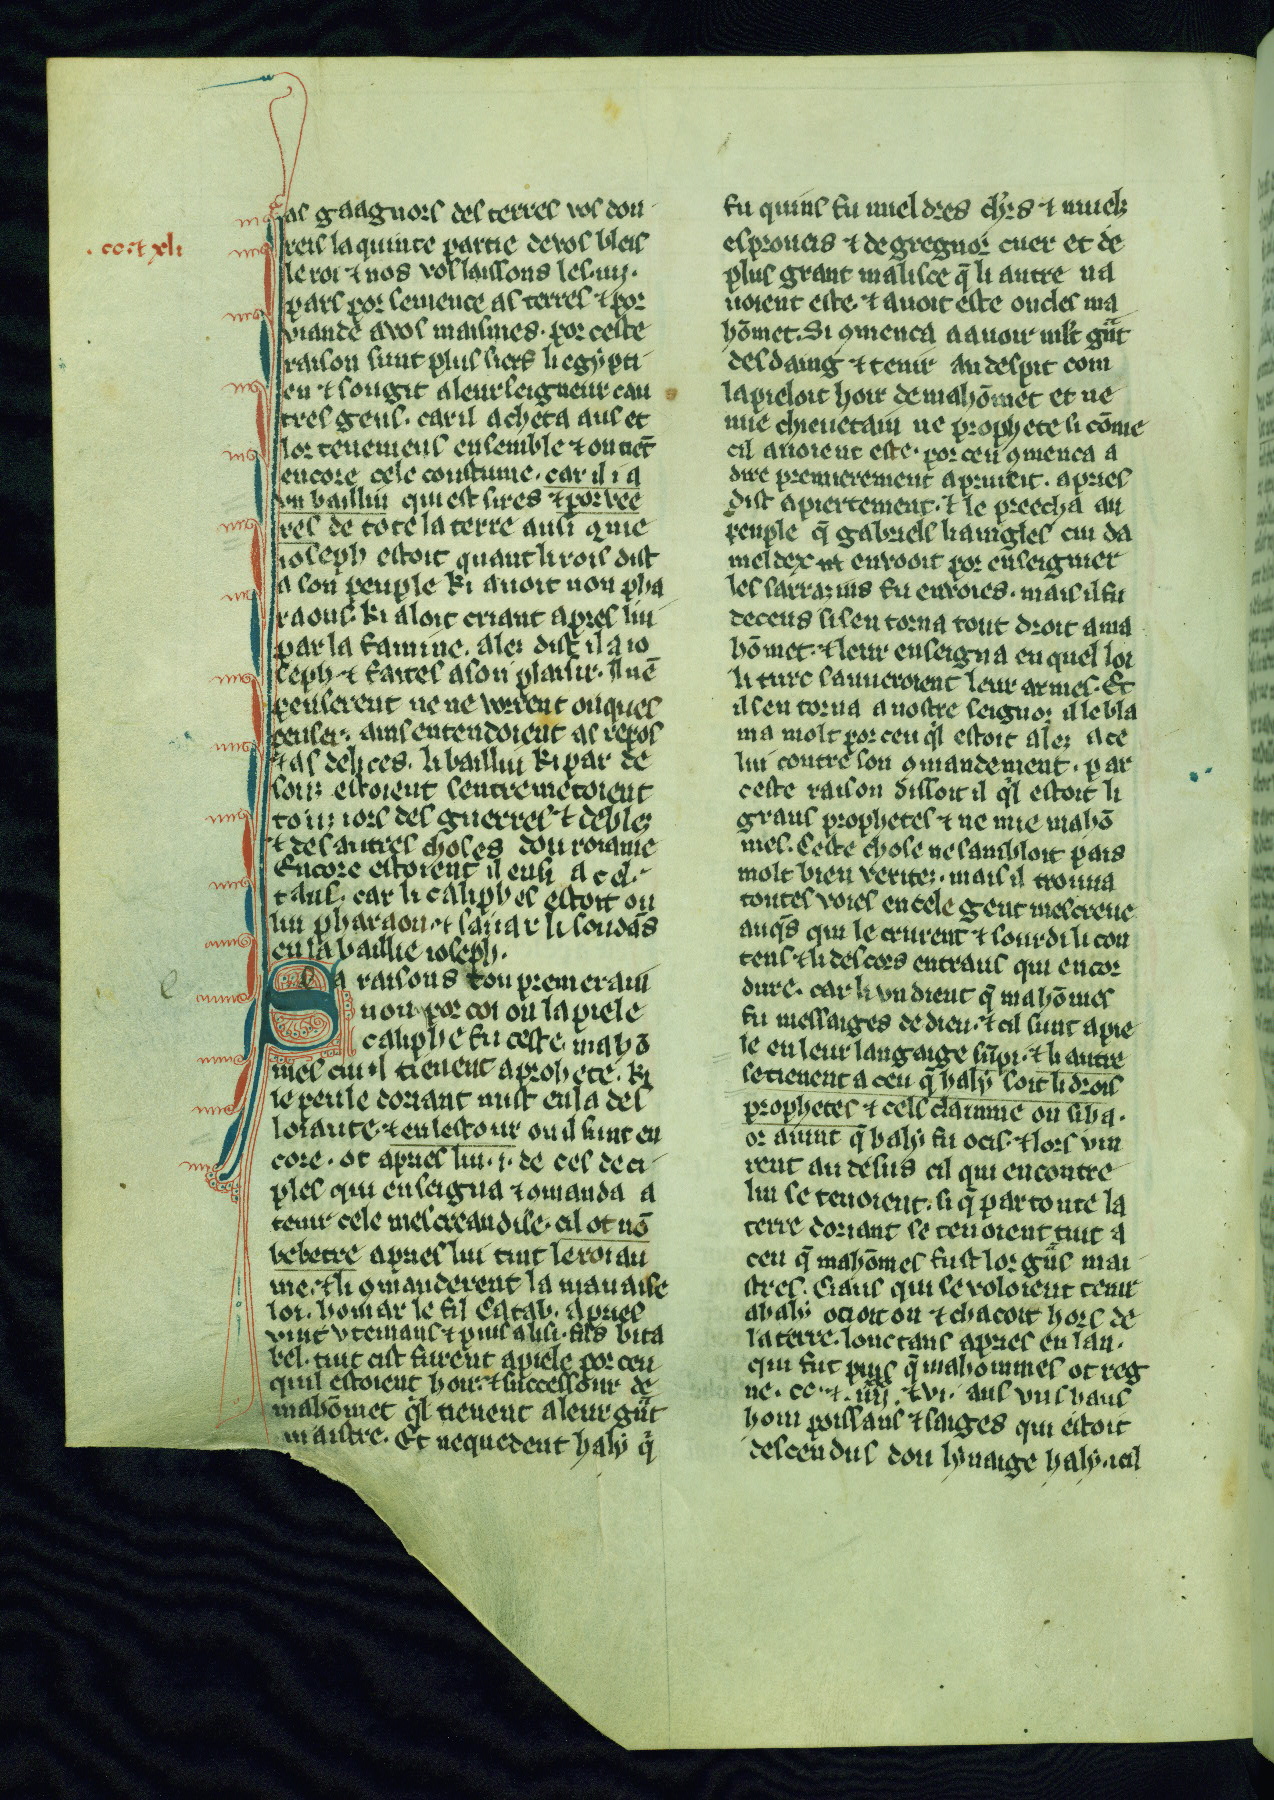 . cc⁊ xli
as gaagnors des terres vos don
reis la quinte partie de vos bleis
le roi ⁊ nos vos laissons les .iiij.
pars por semence as terres ⁊ por
viande a vos maisnies. por ceste
raison sunt plus sierf li egypti
en ⁊ sougit a leur seigneur cau
tres gens. car il acheta aus et
lor tenemens ensemble ⁊ on tiēt
encore cele coustume. car il i a
un bailliu qui est sires ⁊ porvee
res de tote la terre ausi q̄ me
ioseph estoit quant li rois dist
a son peuple ki avoit non pha
raous. ki aloit criant apres lui
par la famine. alez dist il a io
seph ⁊ faites a son plaisir. Il nē
penserent ne ne vorrent onques
penser. ains entendoient as repos
⁊ as delices. li bailliu ki par de
souz estoient sentremetoient
touz iors des guerres ⁊ de blez
⁊ des autres choses dou roiame
Encore estoient il ensi a cel
tans. car li caliphes estoit ou
liu pharaon ⁊ sanar li soudās
en la baillie ioseph.
La raisons dou premerain
non por coi on lapiele
caliphe fu ceste. mahō
mes cui il tienent a prohete. ki
le peule doriant mist en la des
loiaute ⁊ en lestour ou il sunt en
core. ot apries lui .i. de ces deci
ples qui enseigna ⁊ omanda a
tenir cele mescreandise. cil ot nō
bebetre apries lui tint le roiau
me. ⁊ li omanderent la mauaise
loi. homar le fil Catab. apries
vint vtemans ⁊ puis alisi. fils bita
bel. tuit cist furent apiele por ceu
quil estoient hoir ⁊ successour de
mahōmet q̄l tienent a leur gr̄nt
maistre. Et nequedent haly q̄
fu quins fu mieldres chr̄s ⁊ mielz
esproueis ⁊ de gregnor cuer et de
plus grant malisce q̄ li autre na
uoient este. ⁊ auoit este oncles ma
hōmet. Si omenca a auoir mlt gr̄nt
desdaing ⁊ tenir an despit com
lapieloit hoir de mahōmet et ne
mie chieuetain ne prophete si cōme
cil auoient este. por ceu omenca a
dire premierement a priueit. apries
dist apiertement. ⁊ le preecha au
peuple q̄ gabriels li aingles cui da
meldex envooit por enseignier
les sarrazins fu envoies. mais il fu
deceus si sen torna tout droit a ma
hōmet. ⁊ leur enseigna en quel loi
li turc sauueroient leur armes. Et
il sen torna a nostre seignor. il le bla
ma molt por ceu q̄l estoit alez a ce
lui contre son omandement. par
ceste raison dissoit il q̄l estoit li
grans prophetes ⁊ ne mie mahō
mes. Ceste chose ne sambloit pais
molt bien veritez. mais il trouua
toutes voies en cele gent mescreue
auq̄s qui le crurent ⁊ sourdi li con
tens ⁊ li descors entraus qui encor
dure. car li un dient q̄ mahōmes
fu messaiges de dieu. ⁊ cil sunt apie
le en leur langaige sūpi. ⁊ li autre
se tienent a ceu q̄ haly soit li drois
prophetes ⁊ cels claimme on siha.
or auint q̄ haly fu ocis. ⁊ lors vin
rent au desus cil qui encontre
lui se tenoient. si q̄ par toute la
terre doriant se tenoient tuit a
ceu q̄ mahōmes fust lor grās mai
stres. Ciaus qui se voloient tenir
a haly ocioit on ⁊ chacoit hors de
la terre. lonc tans apries en lan.
qui fut puis q̄ mahommes ot reg
ne. cc. ⁊ .iiij. ⁊ vi. ans vns haus
hom poissans ⁊ saiges qui estoit
descendus dou lynaige haly. icil